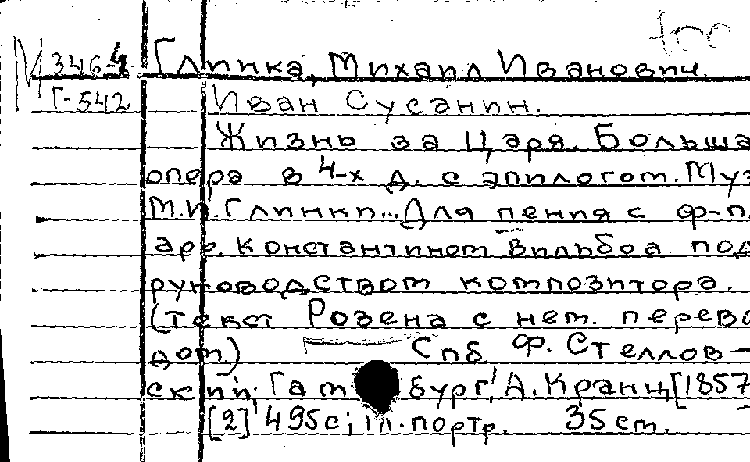 М 3464 Глинка, Михаил Иванович.
Г-542 Иван Сусанин.
Жизнь за Царя. Больша
опера в 4-х д. с эпилогом. Муз
М.И. Глинки... Для пения с ф-п.
ар. Константином Вильбоа под
руководством композитора.
(текст Розена с нем. перево
дом) Спб Ф. Стеллов-
ский; Гам бург, А. Кранц [1857
[2] 495с; 1л. портр. 35см.